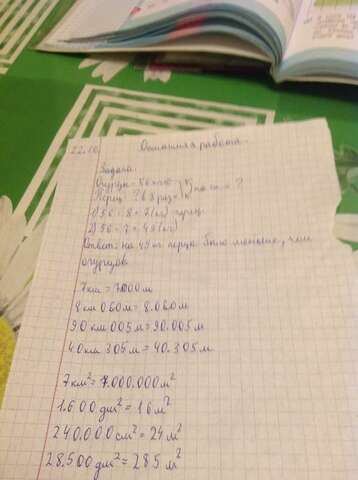 22.10. Домашняя работа.
Задача.
Огурцы - 56 кг
Перец - ? в 8 раз < на ... - ?
1) 56 : 8 = 7 (кг) перец.
2) 56 - 7 = 49 (кг)
Ответ: на 49 кг перца было меньше, чем
огурцов.
7км = 7000м
8км 060м = 8.060м
90км 005м = 90.005м
40км 305м = 40.305м
7км² = 7.000.000м²
1.600дм² = 16м²
240.000см² = 24м²
28.500дм² = 285м²